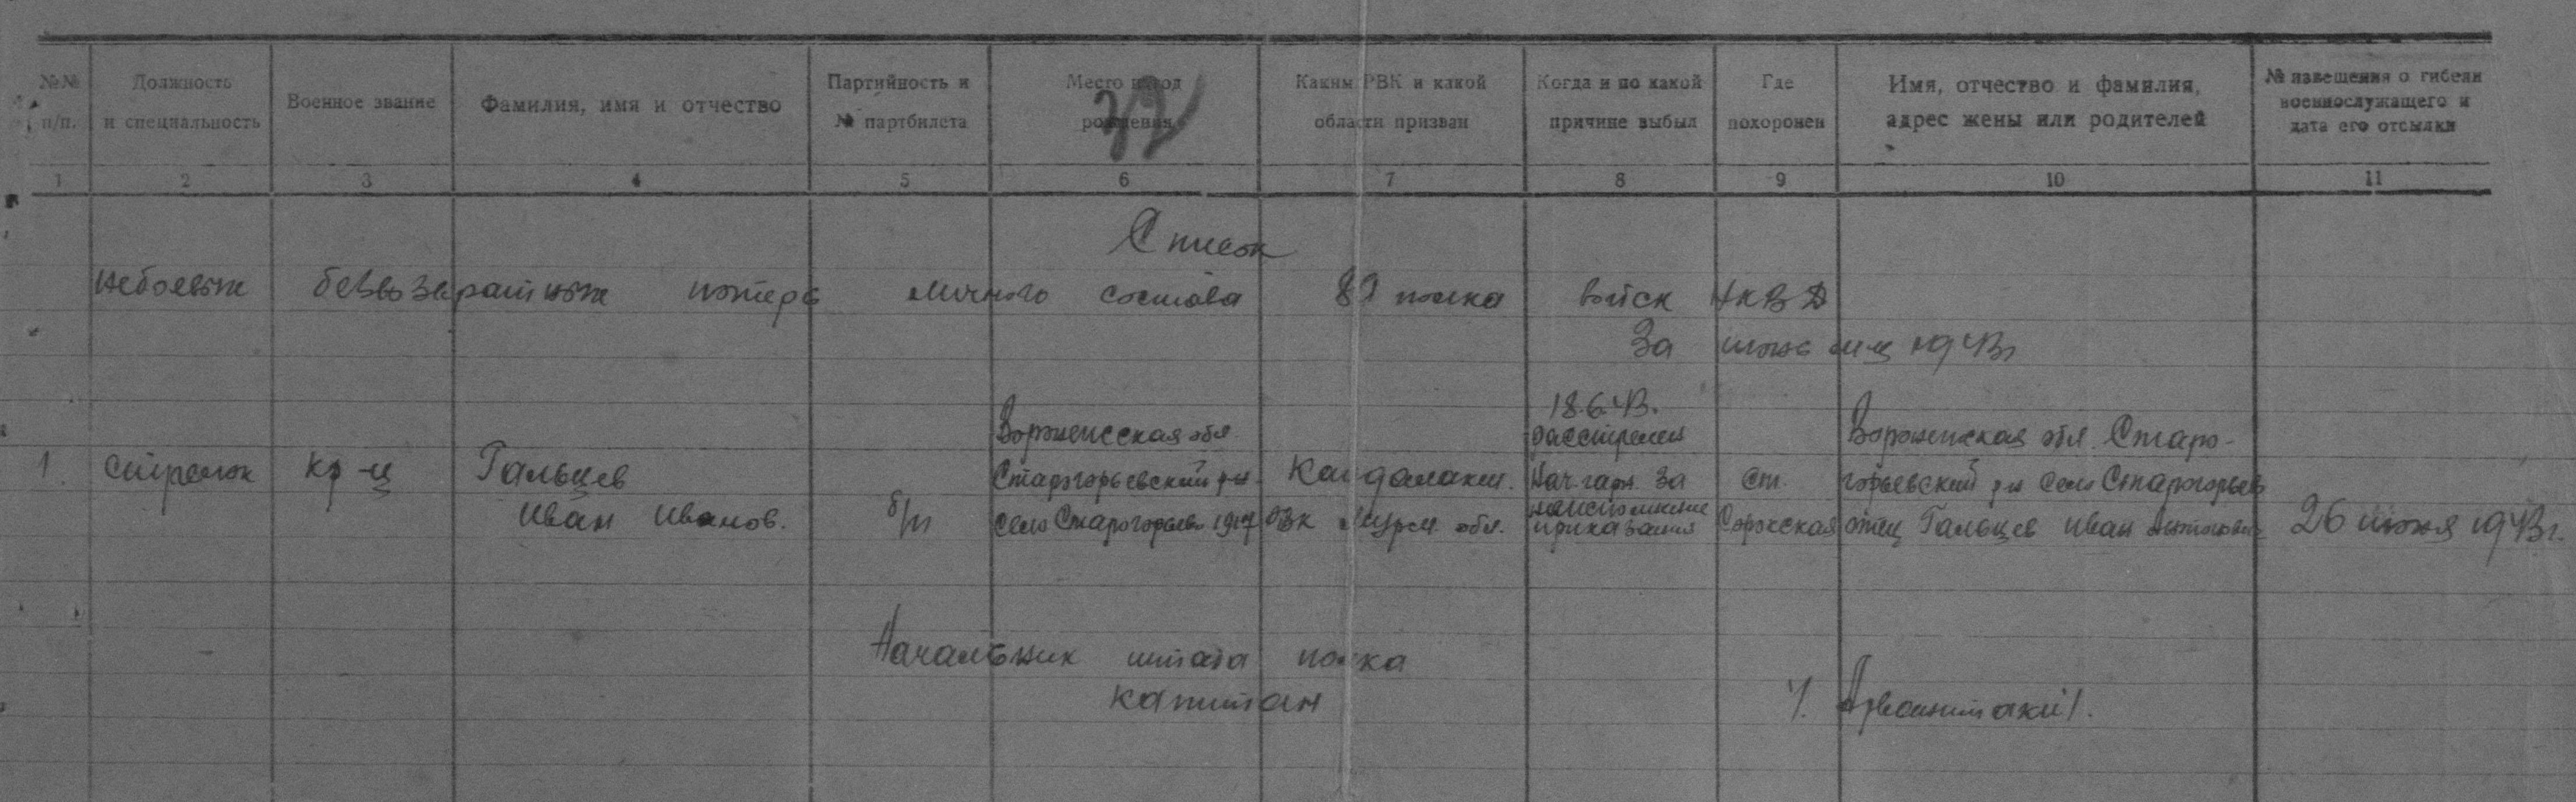 №№ п/п.
Должность и специальность
Военное звание
Фамилия, имя и отчество
Партийность и № партбилета
Место и год рождения
Каким РВК и какой области призван
Когда и по какой причине выбыл
Где похоронен
Имя, отчество и фамилия, адрес жены или родителей
№ извещения о гибели военнослужащего и дата его отсылки
1 2 3 4 5 6 7 8 9 10 11
Список
небоевых безвозвратных потерь личного состава 89 полка войск НКВД
За июнь м-ц 1943г
1. стрелок
кр-ц
Гальцев
Иван Иванов.
б/п
Воронежская обл.
Старогорьевский р-н
село Старогорьев 1917
Кандалакш.
РВК Мурм. обл.
18.6.43.
расстрелен
Нач. гарн. за
неисполнение
приказания
ст.
Сорокская
Воронежская обл. Старо-
горьевский р-н село Старогорьев
отец Гальцев Иван Антонович
26 июня 1943г.
Начальник штаба полка
капитан